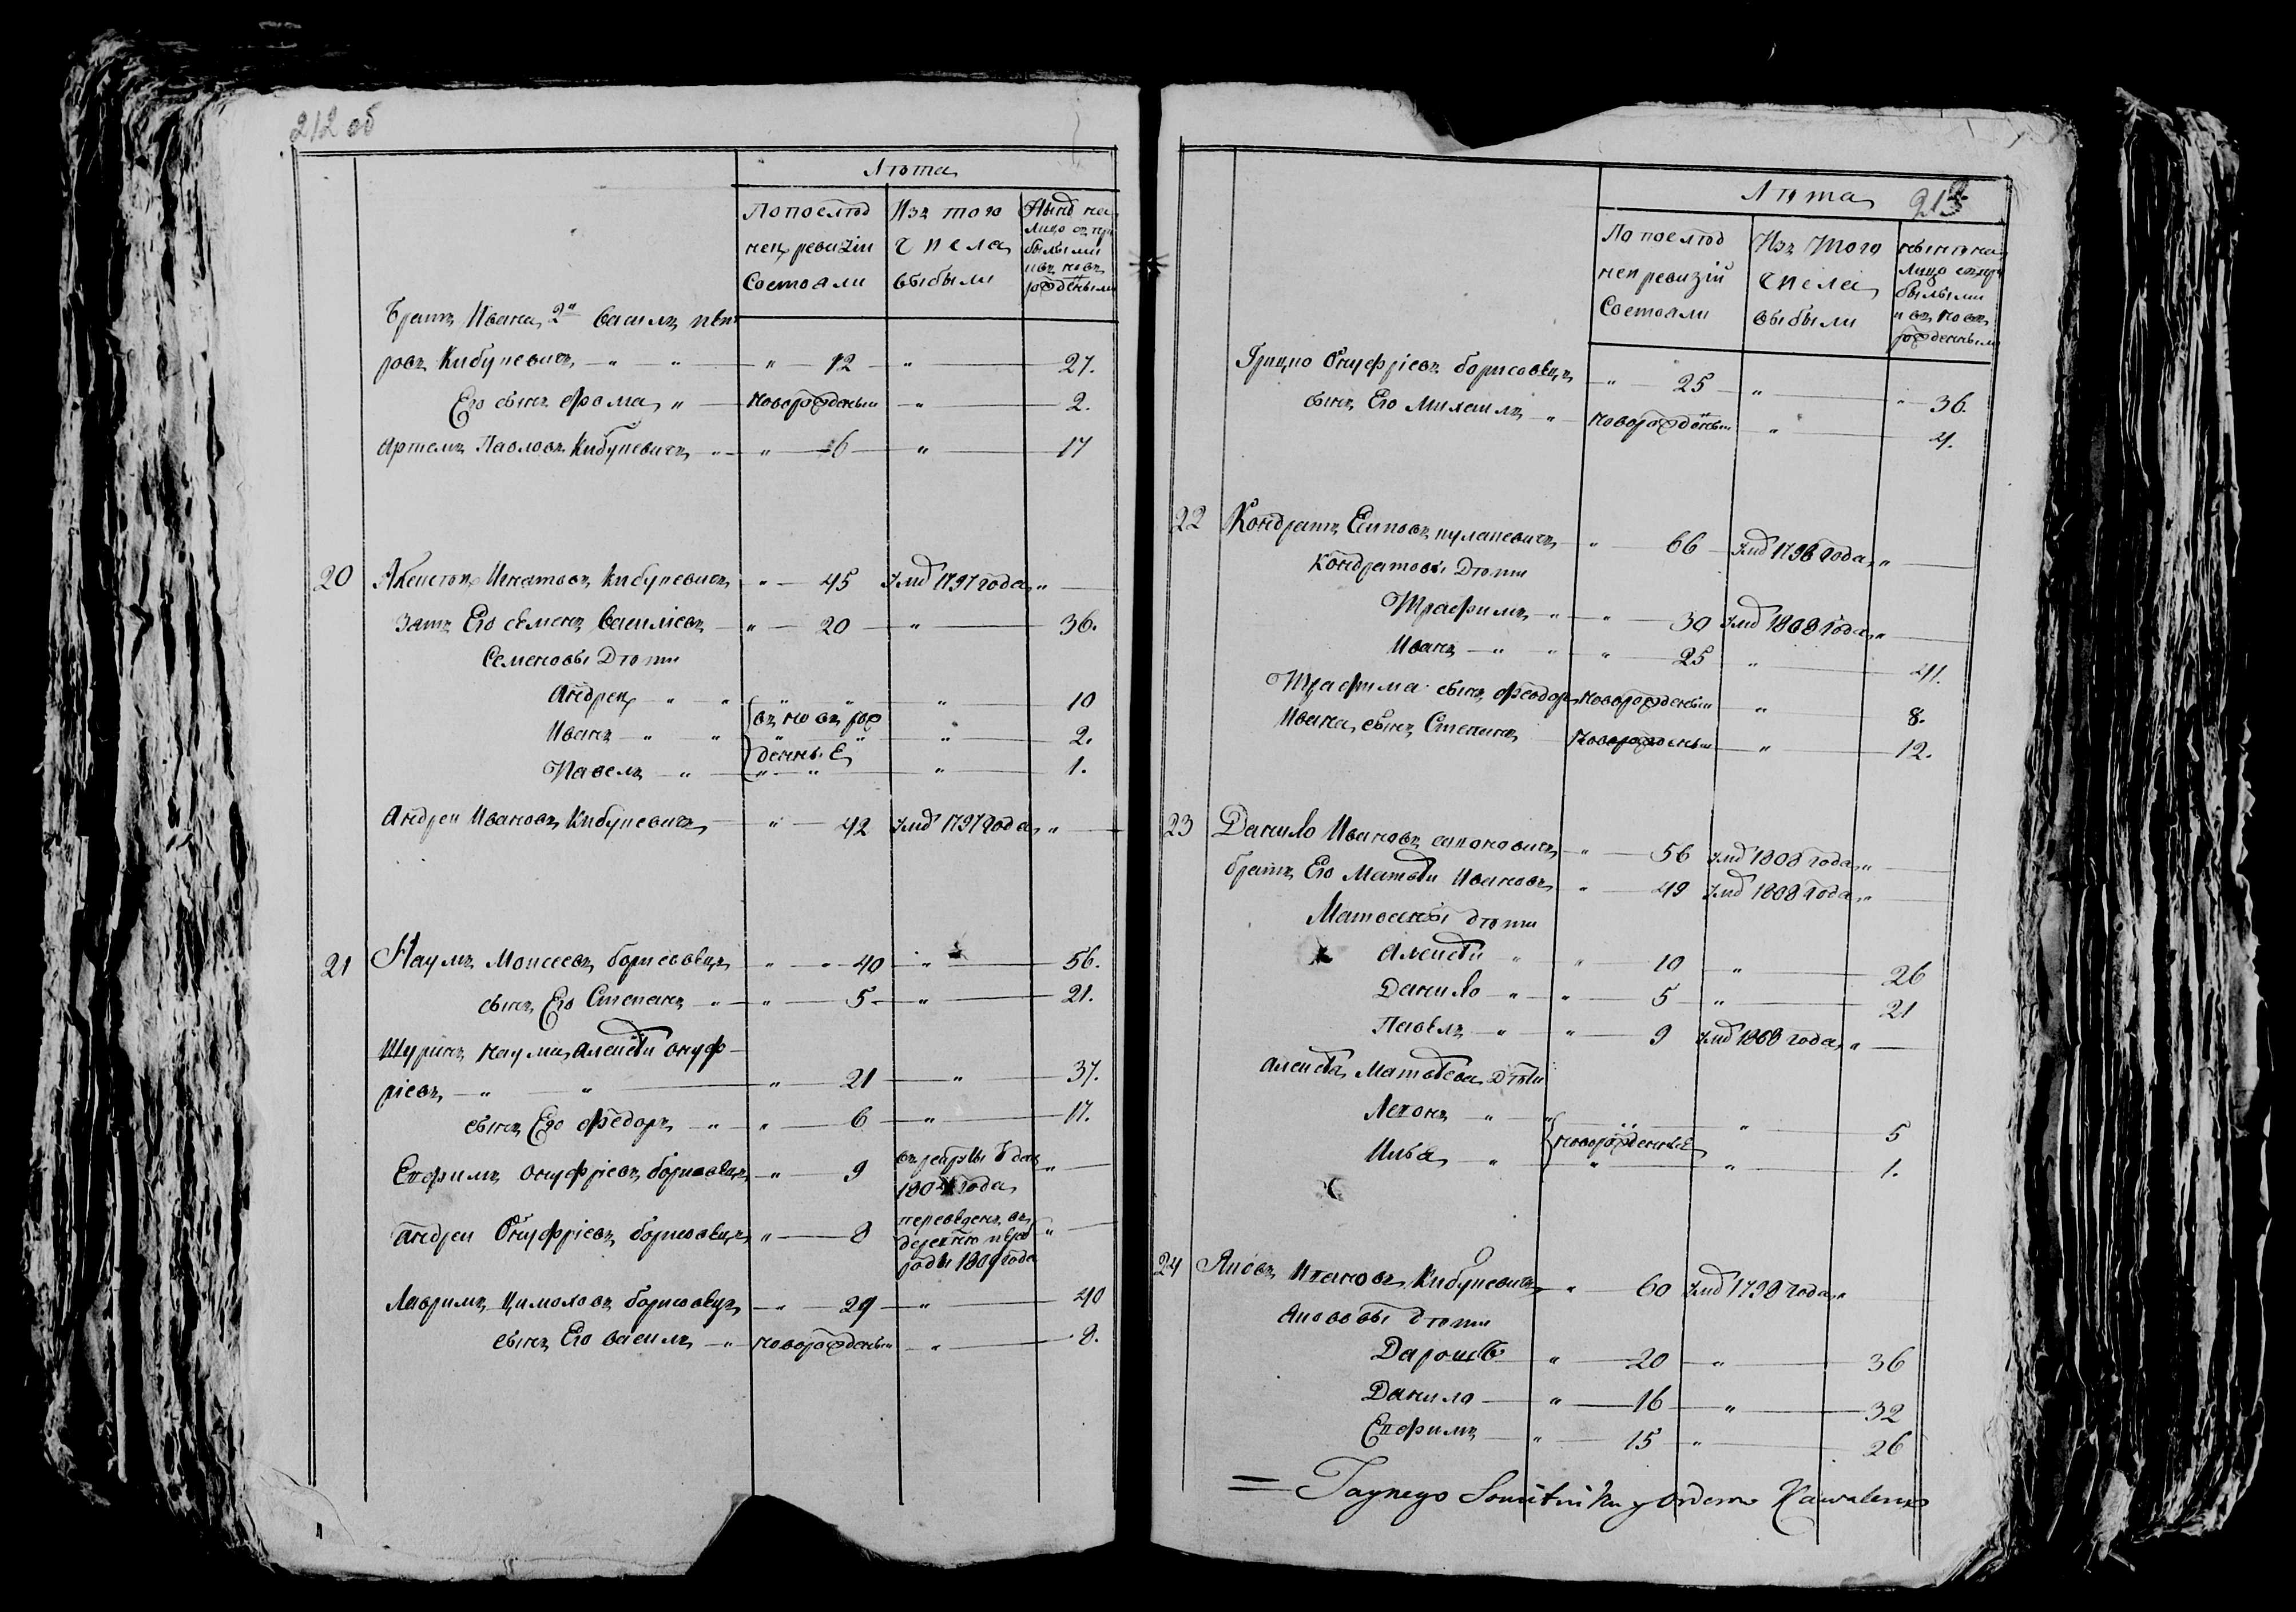 212 об
Лѣта
По последней ревизіи состояли
Изъ того числа выбыли
Нынѣ на лицо съ прибылыми и въ новъ рожденными
Братъ Ивана 2й Василъ
ровъ Кибукевичъ " " " 12 " 27.
Его сынъ Фома " новорожденный " 2.
Артемъ Павловъ Кибукевичъ " " 6 " 17
20 Аксентей Игнатовъ Кибукевичъ " 45 умѣ 1797 года "
зать Его Семенъ Василіевъ " 20 " 36.
Семеновы Дѣти
Андрей " " " " " 10
въ новъ рож
Иванъ " " " " " 2.
денные
Павелъ " " " " 1.
Андрей Ивановъ Кибукевичъ " 42 умѣ 1797 года "
21 Наумъ Моисеевъ Борисовецъ " " 40 " 56.
сынъ Его Степанъ " " 5 " 21.
Шуринъ Наума Алексѣй Онуф
ріевъ " " " 21 " 37.
сынъ Его Федоръ " " 6 " 17.
Ефимъ Онуфріевъ Борисовецъ " 9 въ рекруты
1804 года "
Андрей Онуфріевъ Борисовецъ " 8 переведенъ въ
деревню
роды 1809 года "
Лавримъ Борисовецъ " 29 " 40
сынъ Его Василъ " новорожденный " 8.
213
Лѣта
По последней ревизій состояли
Изъ того числа выбыли
нынѣ на лицо съ прибылыми и въ новъ рожденными
Грицко Онуфріевъ Борисовецъ " 25 " " 36.
сынъ Его Михаилъ " новорожденный " 4.
22 Кондратъ Еситовъ " 66 умѣ 1798 года "
Кондратовы Дѣти
Трафимъ " " 30 умѣ 1808 года "
Иванъ " " " 25 " 41.
Трафима сынъ Феодоръ новорожденный " 8.
Ивана сынъ Степанъ новорожденный " 12.
23 Данило Ивановъ " 56 умѣ 1808 года "
братъ Его Матвѣй Ивановъ " 49 умѣ 1808 года "
Матвеявы дѣти
Алексѣй " " 10 " 26
Данило " " 5 " 21
Павелъ " " 9 умѣ 1808 года "
Алексѣя Матвѣева Дѣти
Леконъ " " " " 5
новорожденные
Илья " " " 1.
24 Яковъ Ивановъ Кибукевичъ " 60 умѣ 1798 года "
Яковавы дѣти
Дарошъ " 20 " 36
Данило " 16 " 32
Ефимъ " 15 " 26
= Taynego Sowitnika y Orderow Kawalera